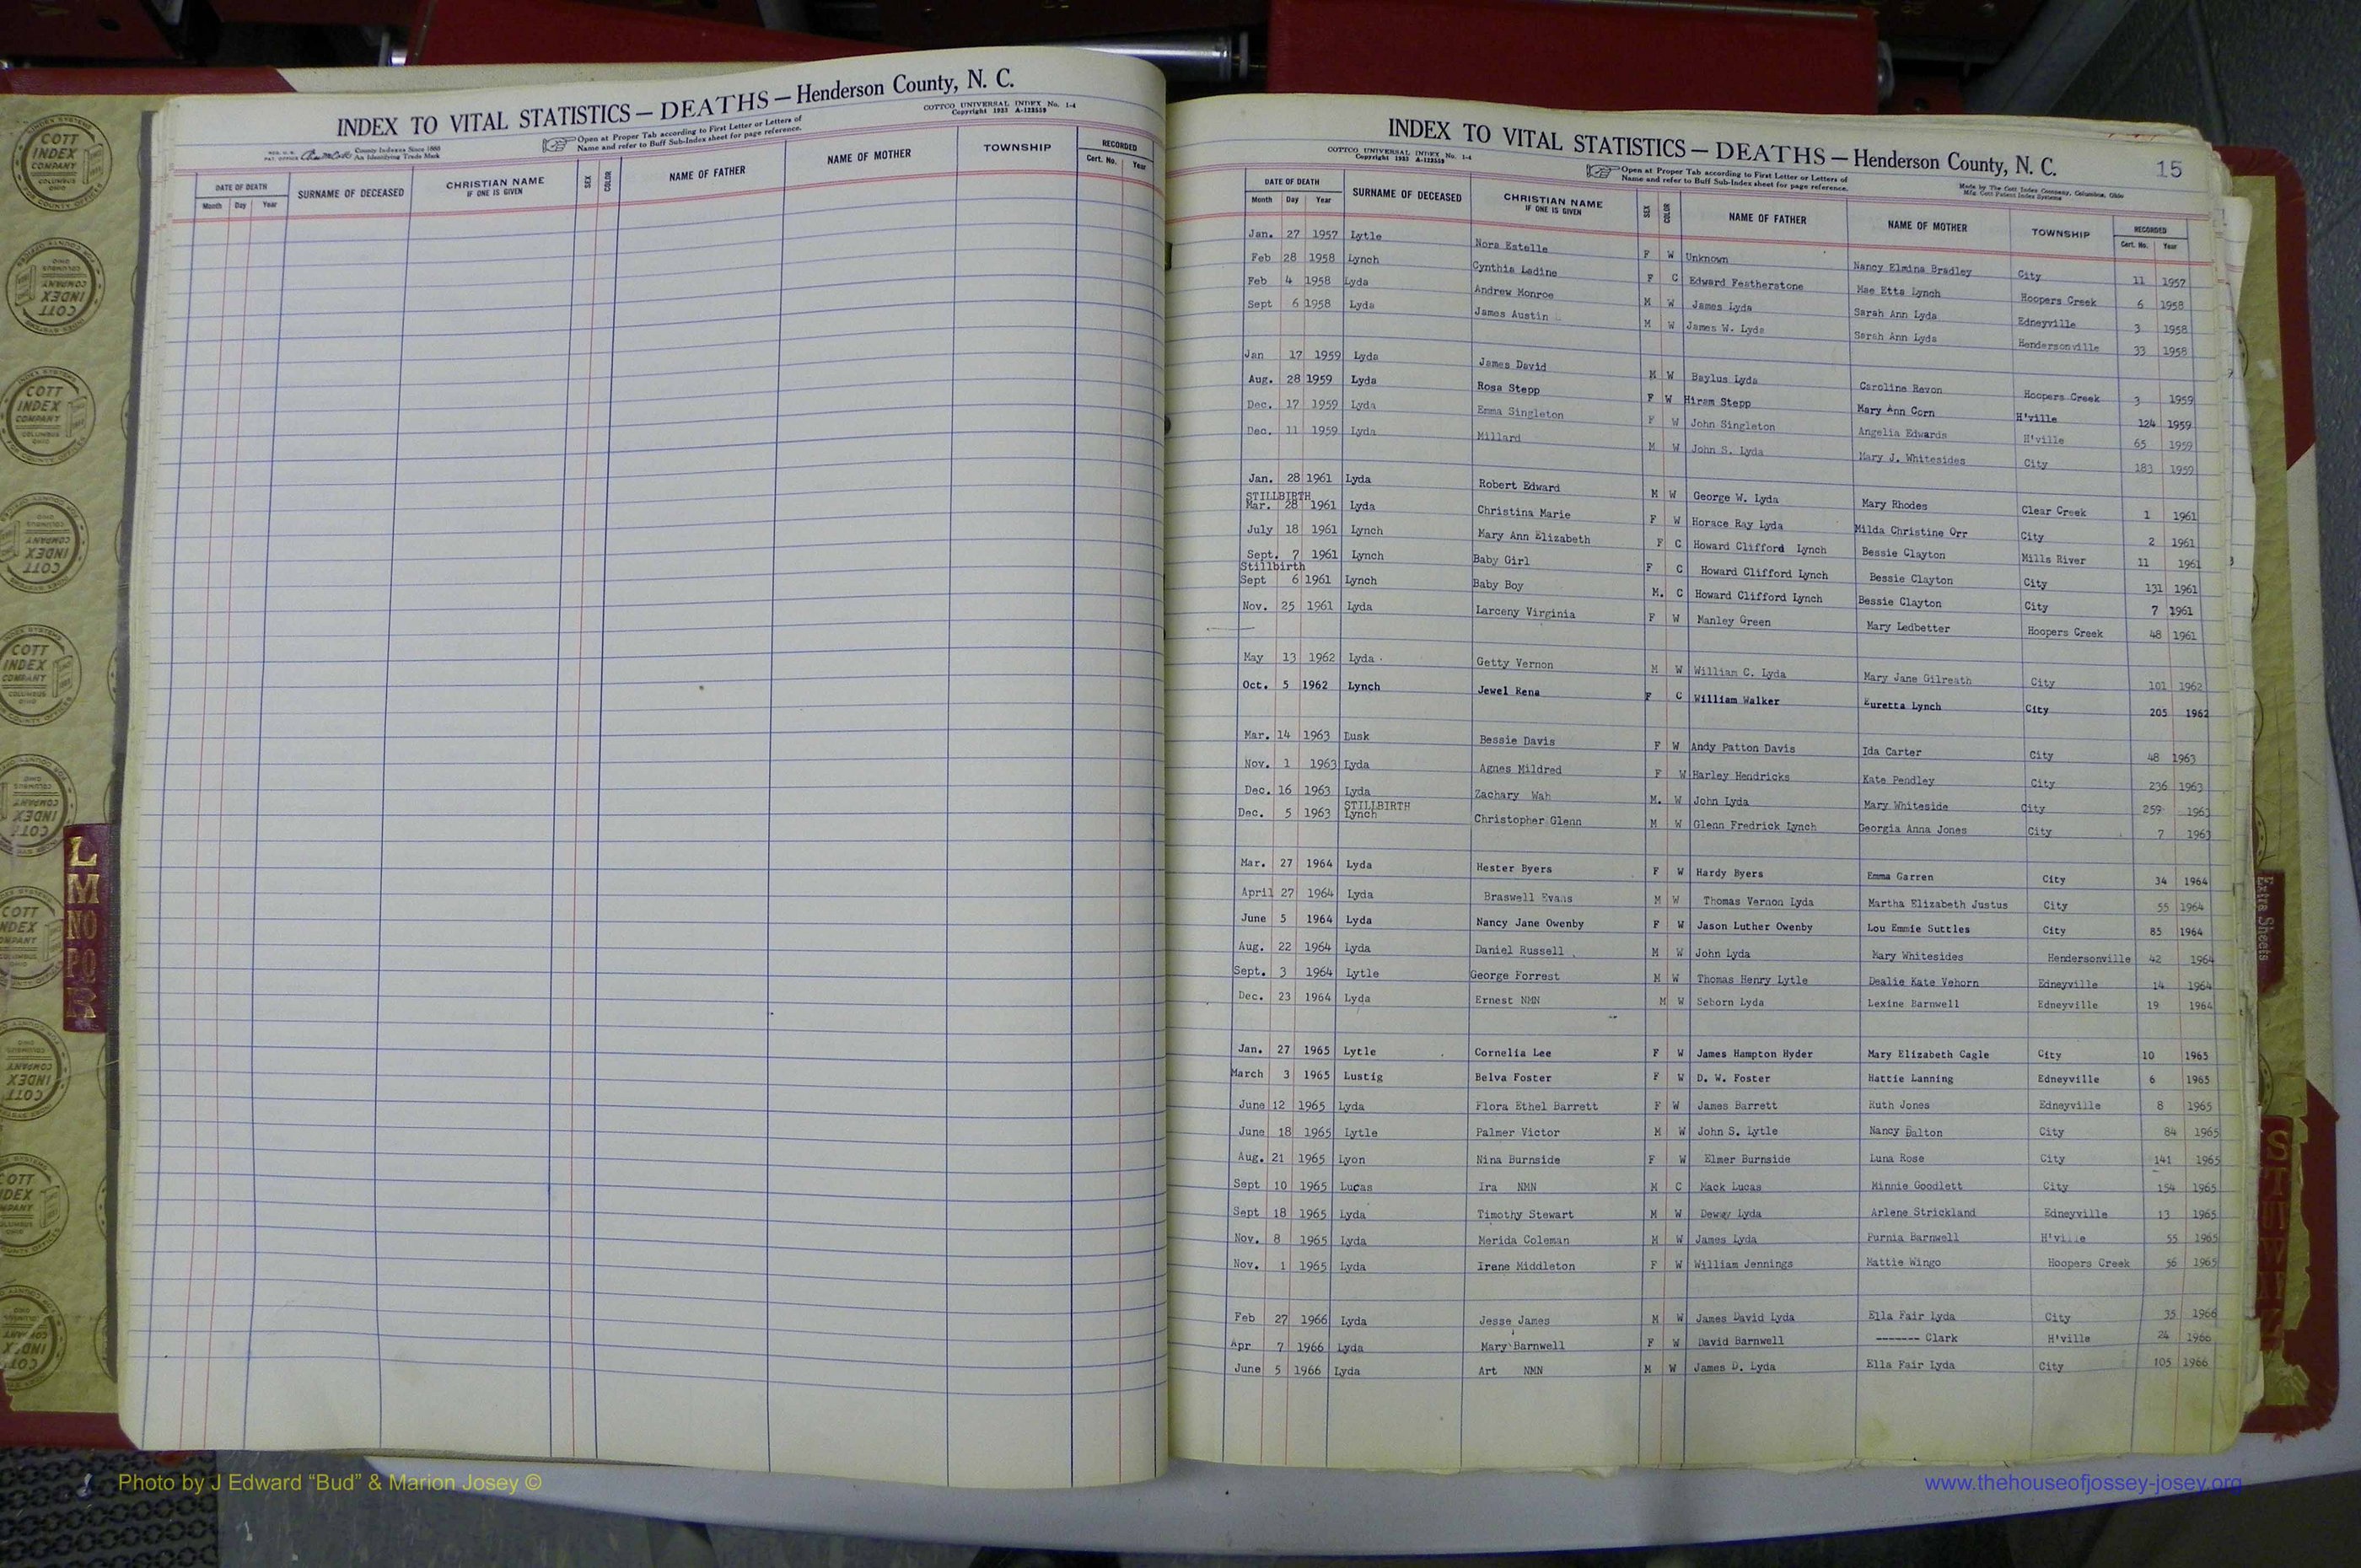 INDEX TO VITAL STATISTICS — DEATHS — Henderson County, N. C.
COTTCO UNIVERSAL INDEX No. 1-4
Copyright 1933 A-122559
County Indexes Since 1888
An Identifying Trade Mark
Open at Proper Tab according to First Letter or Letters of
Name and refer to Buff Sub-Index sheet for page reference.
DATE OF DEATH SURNAME OF DECEASED CHRISTIAN NAME IF ONE IS GIVEN SEX COLOR NAME OF FATHER NAME OF MOTHER TOWNSHIP RECORDED
Month Day Year Cert. No. Year
COTT INDEX COMPANY COLUMBUS OHIO
L
M
NO
PQ
R
INDEX TO VITAL STATISTICS — DEATHS — Henderson County, N. C. 15
COTTCO UNIVERSAL INDEX No. 1-4
Copyright 1933 A-122559
Open at Proper Tab according to First Letter or Letters of
Name and refer to Buff Sub-Index sheet for page reference.
Made by The Cott Index Company, Columbus, Ohio
DATE OF DEATH SURNAME OF DECEASED CHRISTIAN NAME IF ONE IS GIVEN SEX COLOR NAME OF FATHER NAME OF MOTHER TOWNSHIP RECORDED
Month Day Year Cert. No. Year
Jan. 27 1957 Lytle Nora Estelle F W Unknown Nancy Elmina Bradley City 11 1957
Feb 28 1958 Lynch Cynthia Ladine F C Edward Featherstone Mae Etta Lynch Hoopers Creek 6 1958
Feb 4 1958 Lyda Andrew Monroe M W James Lyda Sarah Ann Lyda Edneyville 3 1958
Sept 6 1958 Lyda James Austin M W James W. Lyda Sarah Ann Lyda Hendersonville 33 1958
Jan 17 1959 Lyda James David M W Baylus Lyda Caroline Revon Hoopers Creek 3 1959
Aug. 28 1959 Lyda Rosa Stepp F W Hiram Stepp Mary Ann Corn H'ville 124 1959
Dec. 17 1959 Lyda Emma Singleton F W John Singleton Angelia Edwards H'ville 65 1959
Dec. 11 1959 Lyda Millard M W John S. Lyda Mary J. Whitesides City 183 1959
Jan. 28 1961 Lyda Robert Edward M W George W. Lyda Mary Rhodes Clear Creek 1 1961
STILLBIRTH
Mar. 28 1961 Lyda Christina Marie F W Horace Ray Lyda Milda Christine Orr City 2 1961
July 18 1961 Lynch Mary Ann Elizabeth F C Howard Clifford Lynch Bessie Clayton Mills River 11 1961
Sept. 7 1961 Lynch Baby Girl F C Howard Clifford Lynch Bessie Clayton City 131 1961
Stillbirth
Sept 6 1961 Lynch Baby Boy M. C Howard Clifford Lynch Bessie Clayton City 7 1961
Nov. 25 1961 Lyda Larceny Virginia F W Manley Green Mary Ledbetter Hoopers Creek 48 1961
May 13 1962 Lyda Getty Vernon M W William C. Lyda Mary Jane Gilreath City 101 1962
Oct. 5 1962 Lynch Jewel Rena F C William Walker Euretta Lynch City 205 1962
Mar. 14 1963 Lusk Bessie Davis F W Andy Patton Davis Ida Carter City 48 1963
Nov. 1 1963 Lyda Agnes Mildred F W Harley Hendricks Kate Pendley City 236 1963
Dec. 16 1963 Lyda Zachary Wah M. W John Lyda Mary Whiteside City 259 1963
STILLBIRTH
Dec. 5 1963 Lynch Christopher Glenn M W Glenn Fredrick Lynch Georgia Anna Jones City 7 1963
Mar. 27 1964 Lyda Hester Byers F W Hardy Byers Emma Garren City 34 1964
April 27 1964 Lyda Braswell Evans M W Thomas Vernon Lyda Martha Elizabeth Justus City 55 1964
June 5 1964 Lyda Nancy Jane Owenby F W Jason Luther Owenby Lou Emmie Suttles City 85 1964
Aug. 22 1964 Lyda Daniel Russell M W John Lyda Mary Whitesides Hendersonville 42 1964
Sept. 3 1964 Lytle George Forrest M W Thomas Henry Lytle Dealie Kate Vehorn Edneyville 14 1964
Dec. 23 1964 Lyda Ernest NMN M W Seborn Lyda Lexine Barnwell Edneyville 19 1964
Jan. 27 1965 Lytle Cornelia Lee F W James Hampton Hyder Mary Elizabeth Cagle City 10 1965
March 3 1965 Lustig Belva Foster F W D. W. Foster Hattie Lanning Edneyville 6 1965
June 12 1965 Lyda Flora Ethel Barrett F W James Barrett Ruth Jones Edneyville 8 1965
June 18 1965 Lytle Palmer Victor M W John S. Lytle Nancy Dalton City 84 1965
Aug. 21 1965 Lyon Nina Burnside F W Elmer Burnside Luna Rose City 141 1965
Sept 10 1965 Lucas Ira NMN M C Mack Lucas Minnie Goodlett City 154 1965
Sept 18 1965 Lyda Timothy Stewart M W Dewey Lyda Arlene Strickland Edneyville 13 1965
Nov. 8 1965 Lyda Merida Coleman M W James Lyda Purnia Barnwell H'ville 55 1965
Nov. 1 1965 Lyda Irene Middleton F W William Jennings Mattie Wingo Hoopers Creek 56 1965
Feb 27 1966 Lyda Jesse James M W James David Lyda Ella Fair Lyda City 35 1966
Apr 7 1966 Lyda Mary Barnwell F W David Barnwell ------- Clark H'ville 24 1966
June 5 1966 Lyda Art NMN M W James D. Lyda Ella Fair Lyda City 105 1966
Extra Sheets
Photo by J Edward “Bud” & Marion Josey ©
www.thehouseofjossey-josey.org